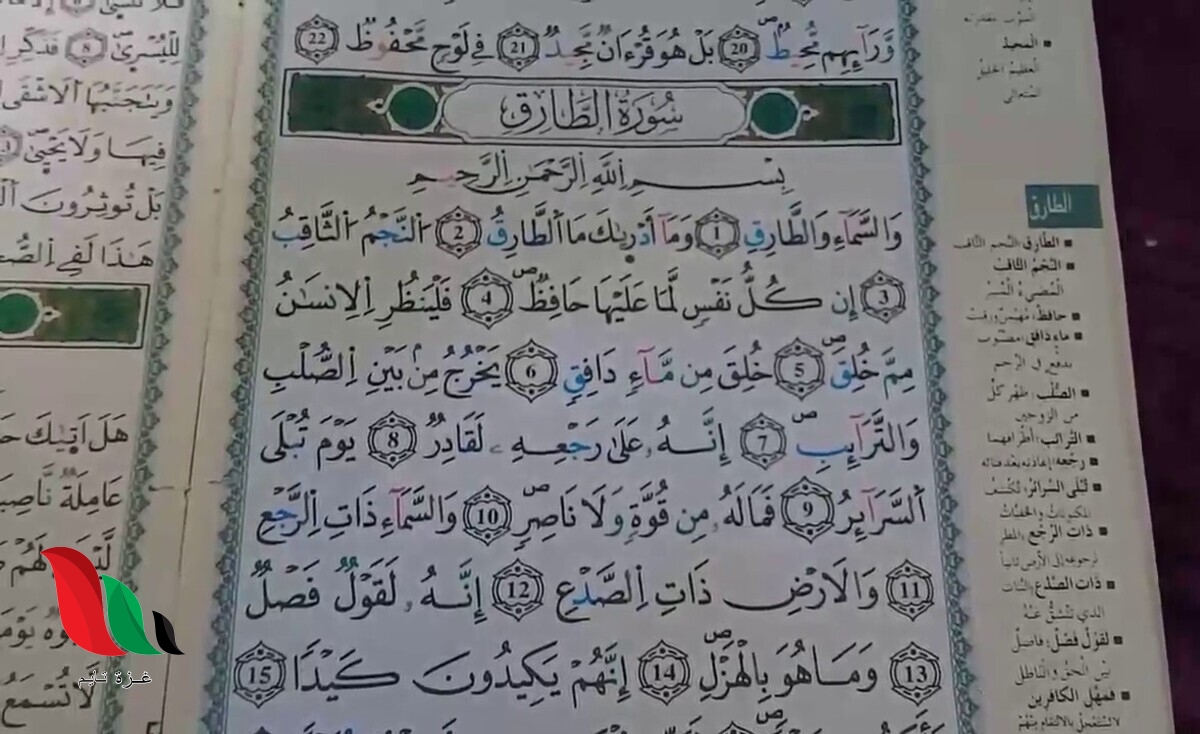 وَّرَآئِهِم مُّحِيطٌۖ 20 بَلْ هُوَ قُرْءَانٌ مَّجِيدٌ 21 فِي لَوْحٍ مَّحْفُوظٌ 22
سُورَةُ الطَّارِقِ
بِسْمِ اِللَّهِ اِلرَّحْمَٰنِ اِلرَّحِيمِ
وَالسَّمَآءِ وَالطَّارِقِ 1 وَمَآ أَدْرٜىٰكَ مَا اَلطَّارِقُ 2 اُلنَّجْمُ اُلثَّاقِبُ
3 إِن كُلُّ نَفْسٍ لَّمَا عَلَيْهَا حَافِظٌۖ 4 فَلْيَنظُرِ اِلِانسَٰنُ
مِمَّ خُلِقَۖ 5 خُلِقَ مِن مَّآءٍ دَافِقٍ 6 يَخْرُجُ مِنۢ بَيْنِ اِلصُّلْبِ
وَالتَّرَآئِبِۖ 7 إِنَّهُۥ عَلَىٰ رَجْعِهِۦ لَقَادِرٌ 8 يَوْمَ تُبْلَى
اَلسَّرَآئِرُ 9 فَمَا لَهُۥ مِن قُوَّةٍ وَلَا نَاصِرٍۖ 10 وَالسَّمَآءِ ذَاتِ اِلرَّجْعِ
11 وَالَارْضِ ذَاتِ اِلصَّدْعِ 12 إِنَّهُۥ لَقَوْلٌ فَصْلٌ
13 وَمَا هُوَ بِالْهَزْلِۖ 14 إِنَّهُمْ يَكِيدُونَ كَيْدًا 15
المجيد
العظيم الجليل
المتعالي
الطارق
الطَّارق: النجم الثاقب
النَّجْمُ الثَّاقب
المُضيءُ المُنير
حافظ: مهيمن ورقيب
ماء دافق: مصبوب
بدفع في الرحم
الصُّلْب: ظهر كل
من الزوجين
التَّرائب: أطرافهما
رجعه: إعادته بعد فنائه
تُبلى السرائر: تُكشف
المكنونات والخفيات
ذات الرَّجْع: المطر
لرجوعه إلى الأرض ثانيا
ذات الصَّدع: النبات
الذي تنشقُّ عنه
لقولٌ فصلٌ: فاصل
بين الحق والباطل
فمهل الكافرين
لا تستعجل بالانتقام منهم
لِلْيُسْرَىٰ 8 فَذَكِّرِ
وَيَتَجَنَّبُهَا اَلَاشْقَى
فِيهَا وَلَا يَحْيَىٰ
بَلْ تُوثِرُونَ
هَٰذَا لَفِي اِلصُّ
هَلَ اَتٜىٰكَ
عَامِلَةٌ نَّاصِ
لَّيْسَ لَهُمْ
لَّا تُسْمَعُ
غـزة تايم